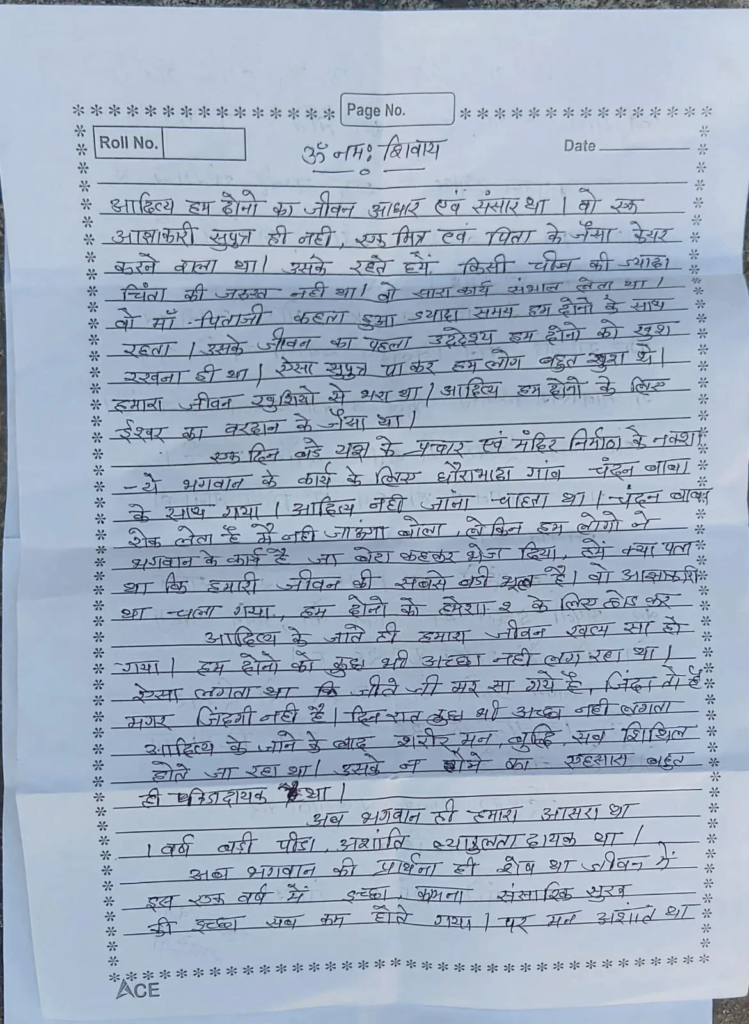 Page No.
Roll No.
Date
ॐ नमः शिवाय
आदित्य हम दोनो का जीवन आधार एवं संसार था । वो एक
आज्ञाकारी सुपुत्र ही नही, एक मित्र एवं पिता के जैसा केयर
करने वाला था। उसके रहते हमें किसी चीज की ज्यादा
चिंता की जरुरत नही था। वो सारा कार्य संभाल लेता था ।
वो माँ-पिताजी कहता हुआ ज्यादा समय हम दोनो के साथ
रहता । उसके जीवन का पहला उद्देश्य हम दोनो को खुश
रखना ही था । ऐसा सुपुत्र पा कर हम लोग बहुत खुश थे।
हमारा जीवन खुशियो से भरा था। आदित्य हम दोनो के लिए
ईश्वर का वरदान के जैसा था।
एक दिन बडे यज्ञ के प्रचार एवं मंदिर निर्माण के नक्शा
-ये भगवान के कार्य के लिए धौराभाठा गांव चंदन बाबा
के साथ गया । आदित्य नही जाना चाहता था । चंदन बाबा
रोक लेता है मै नही जाऊंगा बोला, लेकिन हम लोगो ने
भगवान के कार्य है जा बेटा कहकर भेज दिया, हमें क्या पता
था कि हमारी जीवन की सबसे बडी भूल है। वो आज्ञाकारी
था चला गया, हम दोनो को हमेशा २ के लिए छोड कर
आदित्य के जाते ही हमारा जीवन खत्म सा हो
गया । हम दोनो को कुछ भी अच्छा नही लग रहा था ।
ऐसा लगता था कि जीते जी मर सा गये है, जिंदा तो है
मगर जिंदगी नही है। दिन रात कुछ भी अच्छा नही लगता
आदित्य के जाने के बाद शरीर मन, बुद्धि, सब शिथिल
होते जा रहा था। उसके न होने का एहसास बहुत
ही था ।
अब भगवान ही हमारा आसरा था
1 वर्ष बडी पीडा, अशांति व्याकुलता दायक था ।
अब भगवान की प्रार्थना ही शेष था जीवन में
इस एक वर्ष में इच्छा, कमना संसारिक सुख
की इच्छा सब कम होते गया । पर मन अशांत था
ACE